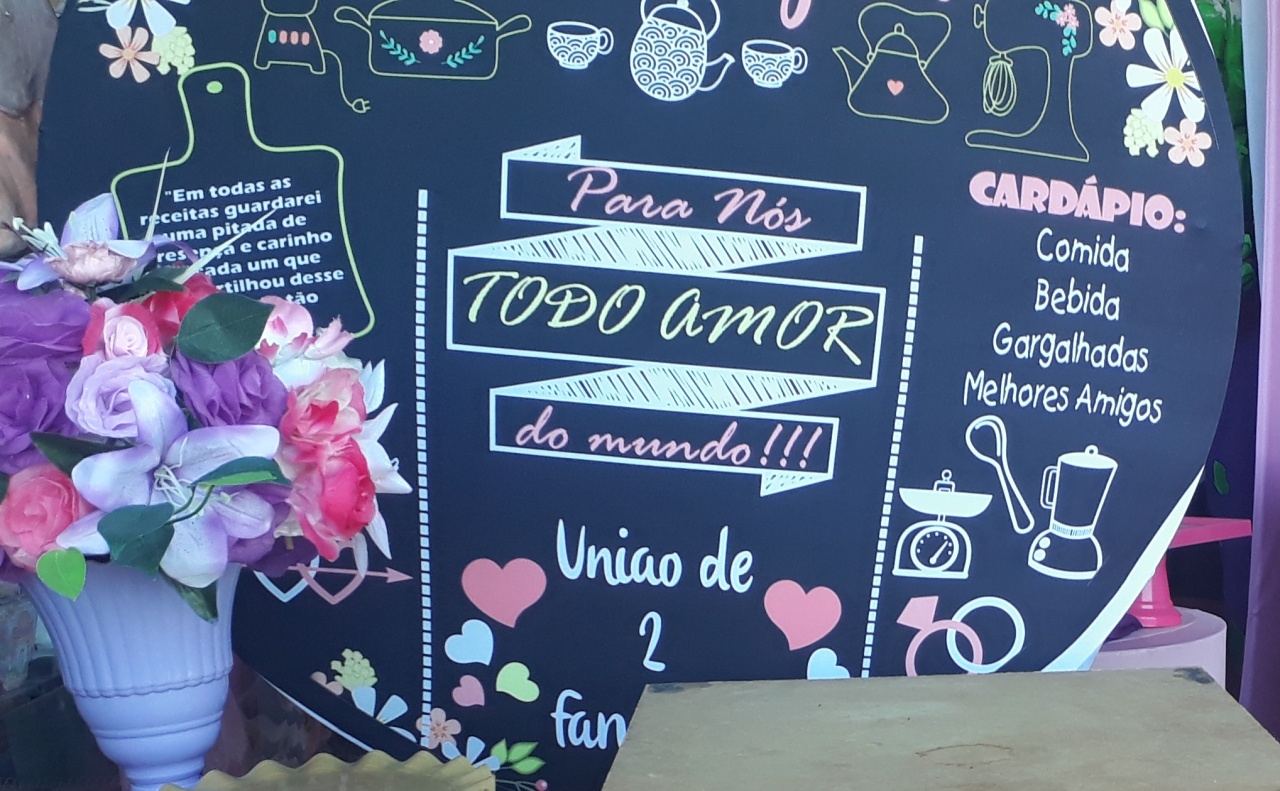 "Em todas as
receitas guardarei
uma pitada de
e carinho
um que
desse
Para Nós
TODO AMOR
do mundo!!!
Uniao de
2
CARDÁPIO:
Comida
Bebida
Gargalhadas
Melhores Amigos